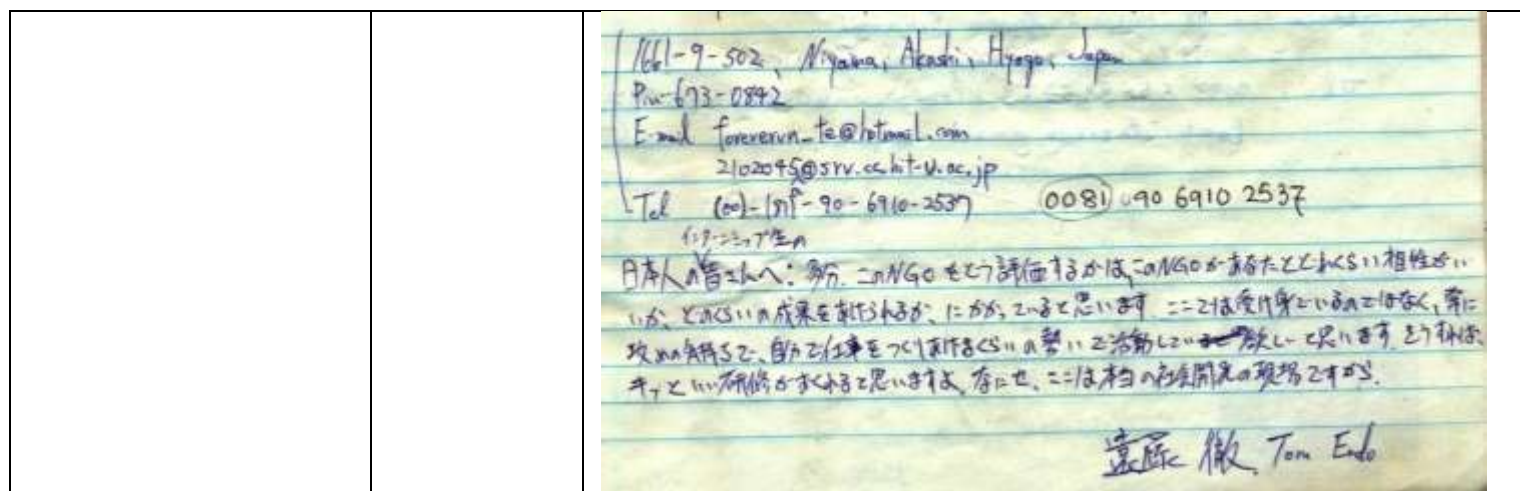 1661-9-502, Niyama, Akashi, Hyogo, Japan
Pin-673-0842
E-mail foreverun_te@hotmail.com
2102045@srv.cc.hit-u.ac.jp
Tel (00)-(81)-90-6910-2537 0081 90 6910 2537
インターンシップ生の
日本人の皆さんへ:多分、このNGOをどう評価するかは、このNGOがあなたとどれくらい相性がい
いか、どのくらいの成果をあげられるか、にかかっていると思います。ここでは受け身でいるのではなく、常に
攻めの気持ちで、自分で仕事をつくりあげるくらいの勢いで活動して欲しいと思います。そうすれば、
キットいい研修がおくれると思いますよ。なにせ、ここは本当の社会開発の現場ですから。
遠藤 徹 Tom Endo